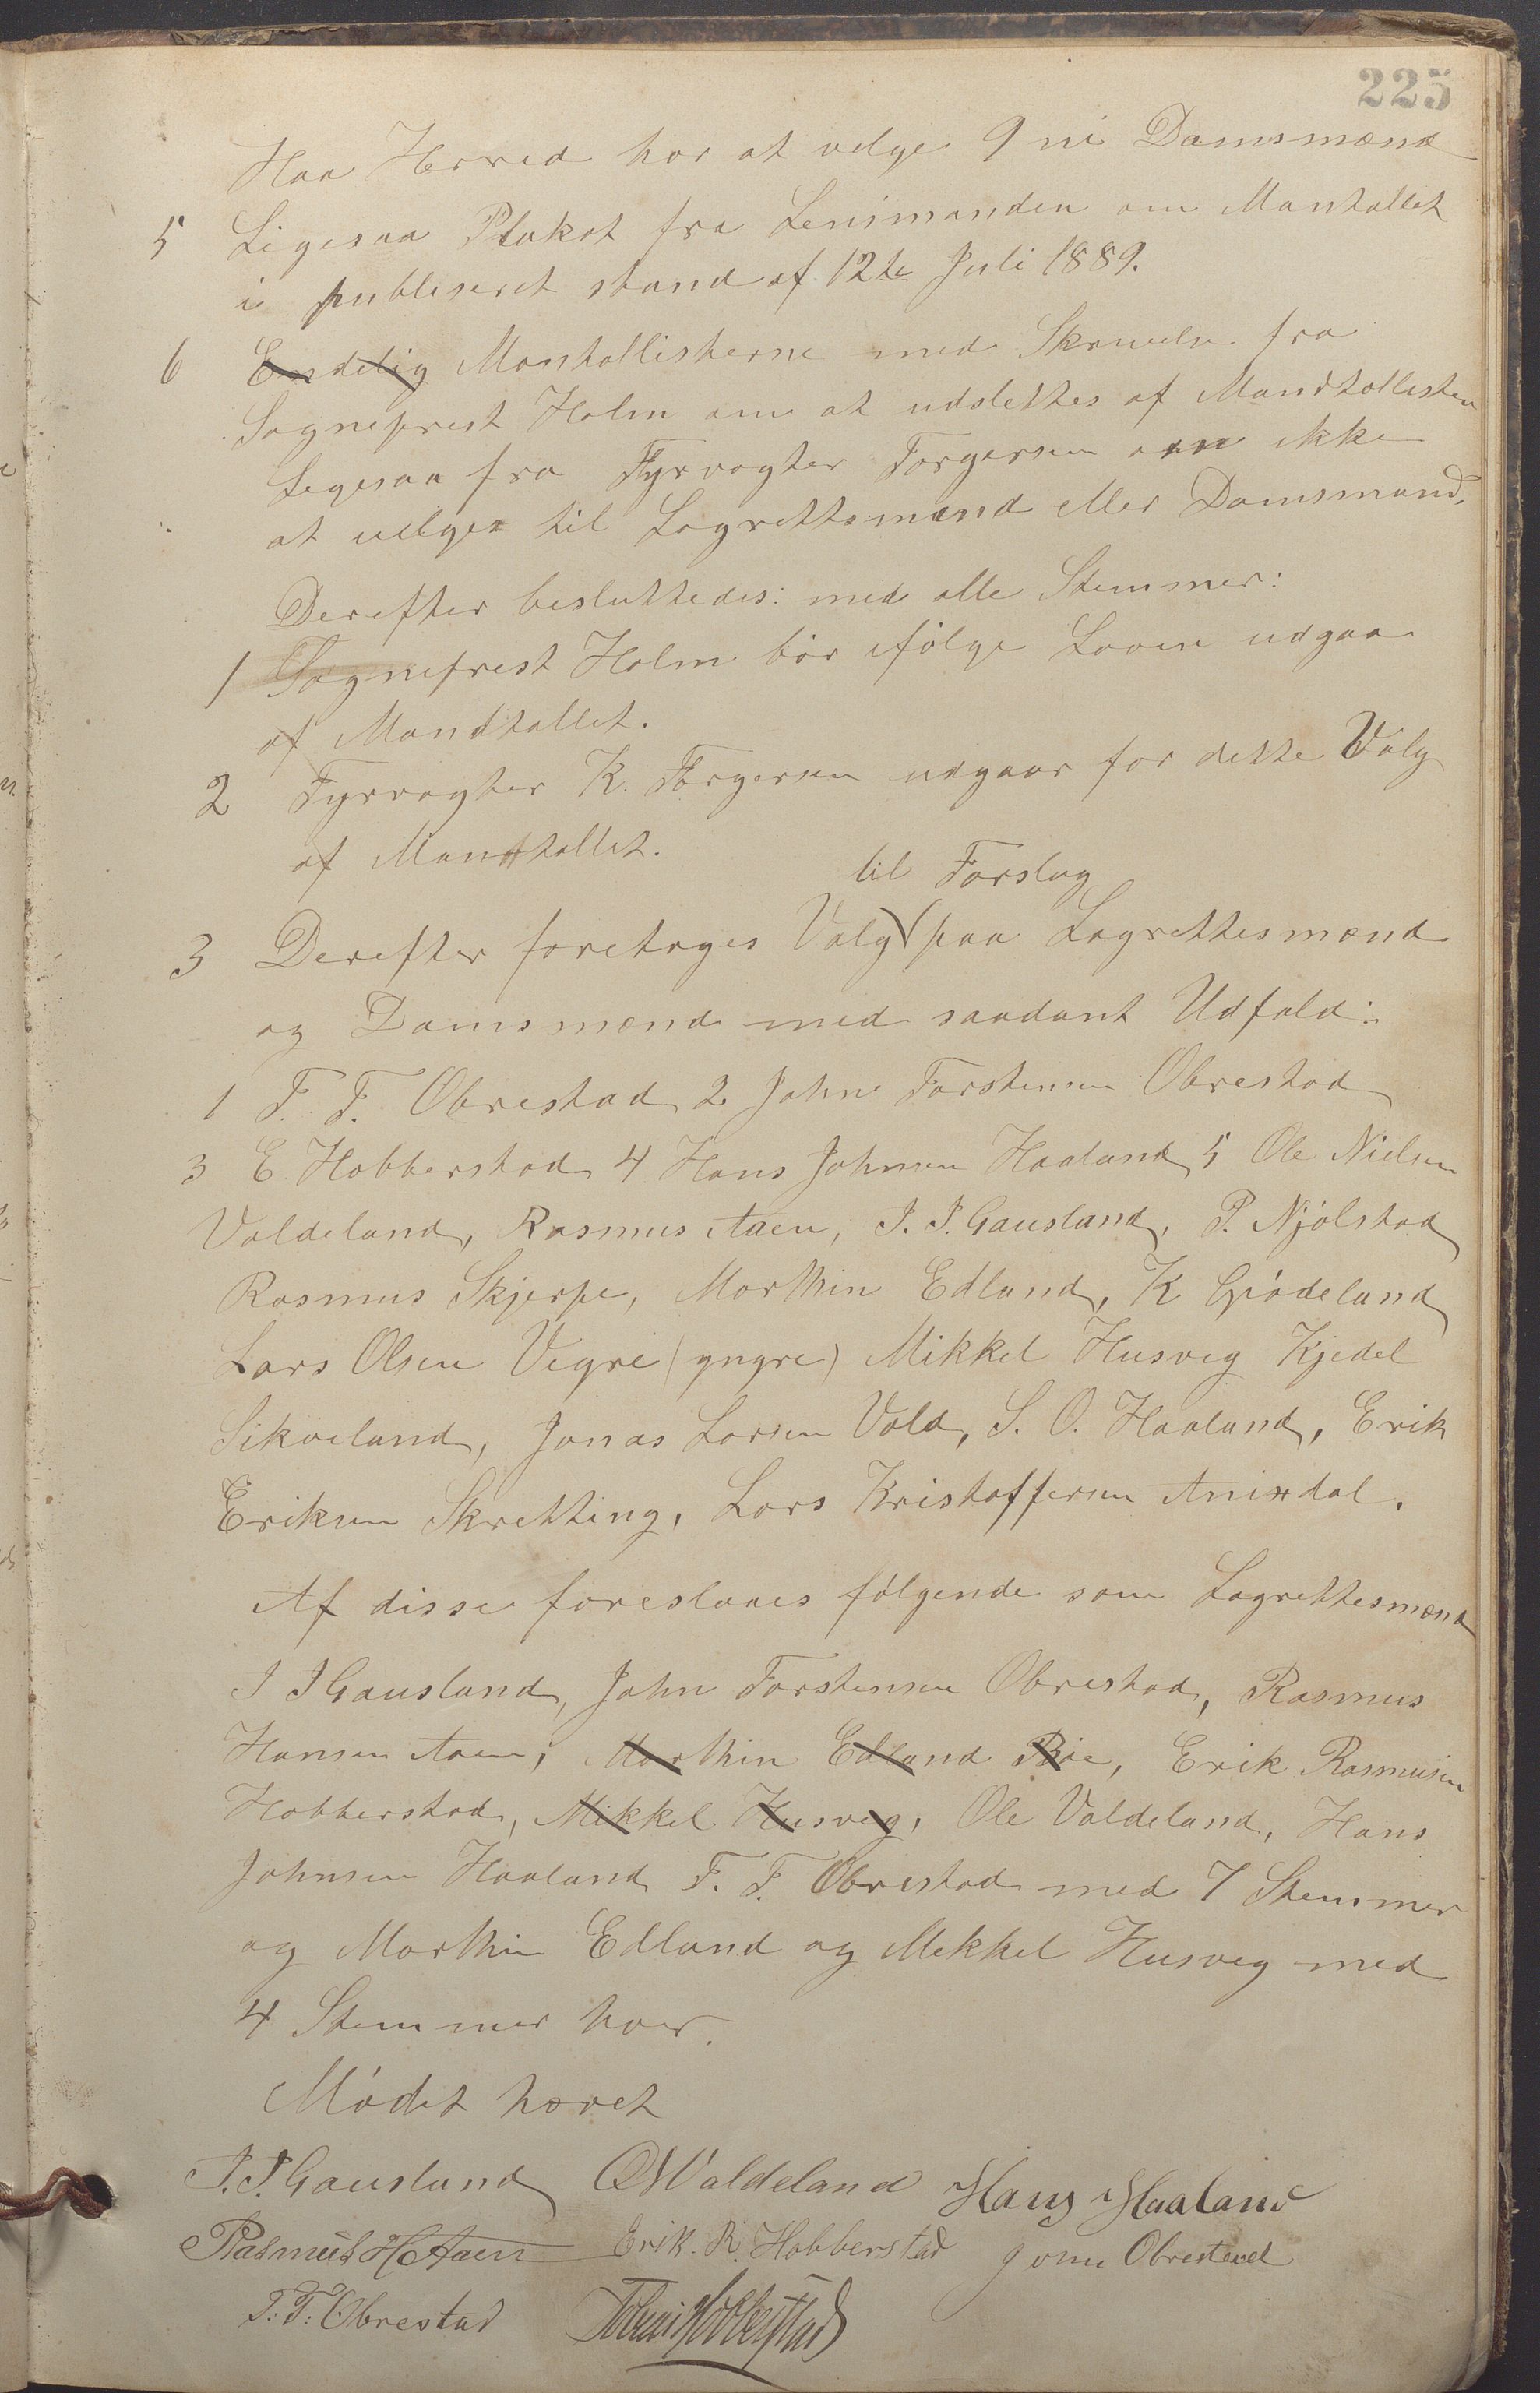 225
Haa Herred har at velge 9 ni Domsmænd
5 Ligesaa Plakat fra Lensmanden om Mantallet
i publiseret stand af 12te Juli 1889.
6 Endelig Mantallisterne med Skrivelse fra
Sogneprest Holm om at udslettes af Mandtallisten
Ligesaa fra Fyrvogter Torgersen om ikke
at velges til Lagrettsmænd eller Domsmænd.
Derefter besluttedes: med alle Stemmer:
1 Sogneprest Holm bør ifølge Loven udgaa
af Mandtallet.
2 Fyrvogter K. Torgersen udgaar for dette Valg
af Mandtallet.
til Forslag
3 Derefter foretoges Valg paa Lagrettesmænd
og Domsmænd med saadant Udfald:
1 T. T. Obrestad 2 John Torstensen Obrestad
3 E Hobberstad 4 Hans Johnsen Haaland 5 Ole Nielsen
Valdeland, Rasmus Aaen, J. J. Gausland, P. Njølstad
Rasmus Skjerpe, Morthin Edland, K Grødeland
Lars Olsen Vigre (yngre) Mikkel Husveg Kjedel
Sikveland, Jonas Larsen Vold, S. O. Haaland, Erik
Eriksen Skretting, Lars Kristoffersen Anisdal.
Af disse foresloaes følgende som Lagrettesmænd
J J Gausland, John Torstensen Obrestad, Rasmus
Hansen Aaen, Morthin Edland Bøe, Erik Rasmusen
Hobberstad, Mikkel Husveg, Ole Valdeland, Hans
Johnsen Haaland T. T. Obrestad med 7 Stemmer
og Morthin Edland og Mekkel Husveg med
4 Stemmer hver.
Mødet hævet
J. J. Gausland O N Valdeland Hans Haaland
Rasmus H Aaen Erik. R. Hobberstad John Obrestad
T: T: Obrestad Hobberstad